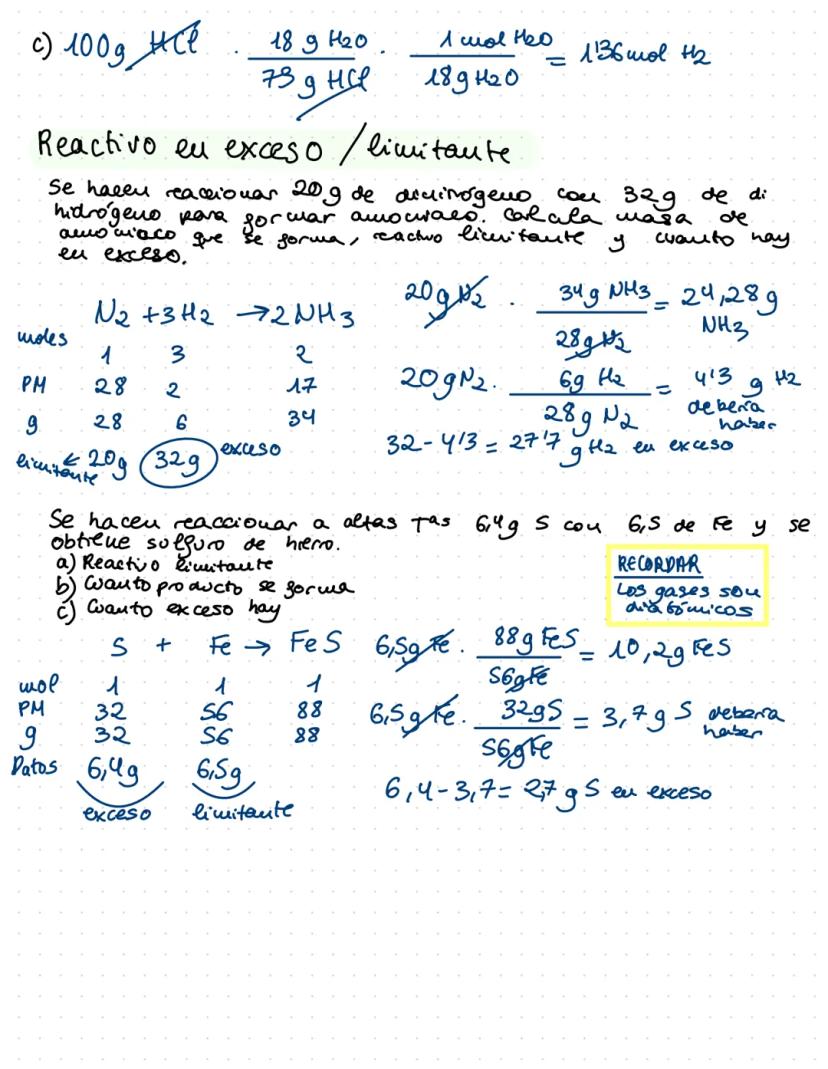 c) 100g HCl · 18 g H2O / 73 g HCl · 1 mol H2O / 18g H2O = 1'36 mol H2
Reactivo en exceso / limitante
Se hacen reaccionar 20 g de dinitrógeno con 32g de di
hidrógeno para formar amoniaco. Calcula masa de
amoniaco que se forma, reactivo limitante y cuanto hay
en exceso.
N2 + 3H2 → 2NH3
moles 1 3 2
PM 28 2 17
g 28 6 34
limitante ← 20g 32g exceso
20g N2 · 34g NH3 / 28g N2 = 24,28g NH3
20g N2 · 6g H2 / 28g N2 = 4'3 g H2 debería haber
32 - 4'3 = 27'7 g H2 en exceso
Se hacen reaccionar a altas Tas 6,4g S con 6,5 de Fe y se
obtiene sulfuro de hierro.
a) Reactivo limitante
b) Cuanto producto se forma
c) Cuanto exceso hay
RECORDAR
Los gases son
diatómicos
S + Fe → FeS
mol 1 1 1
PM 32 56 88
g 32 56 88
Datos 6,4g 6,5g
exceso limitante
6,5g Fe · 88g FeS / 56g Fe = 10,2g FeS
6,5g Fe · 32g S / 56g Fe = 3,7g S debería haber
6,4 - 3,7 = 2,7 g S en exceso